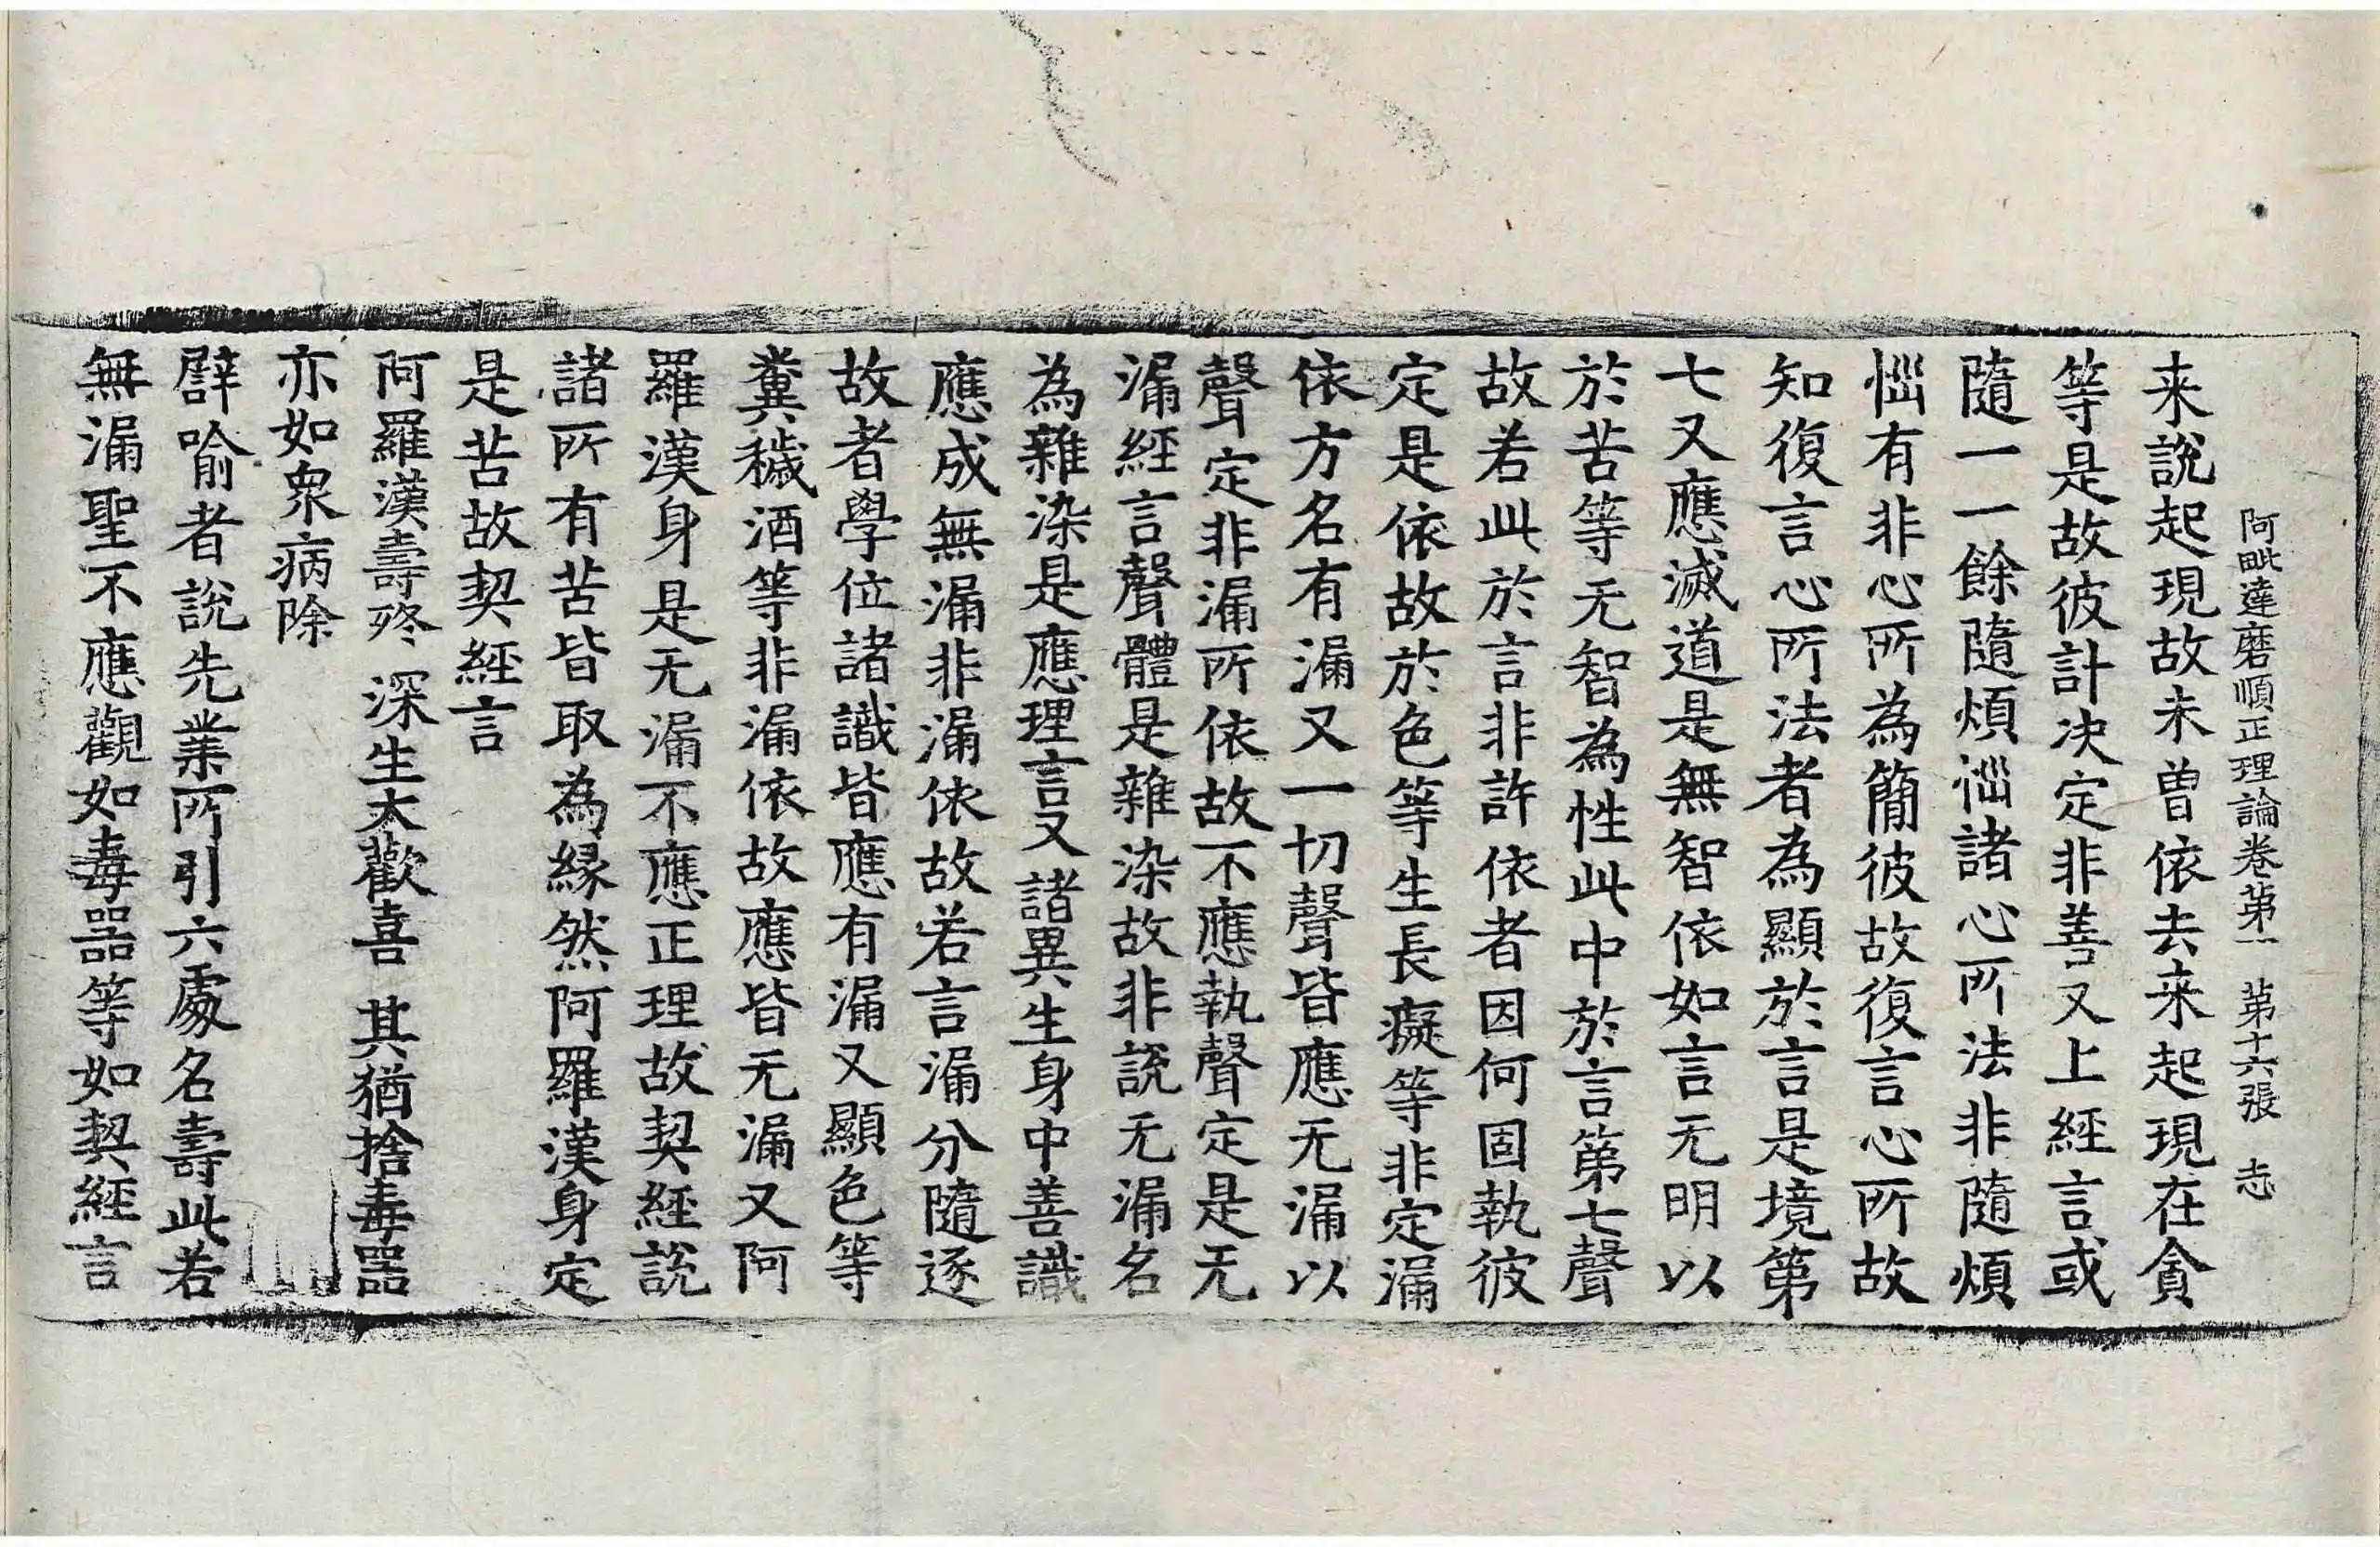 阿毗達磨順正理論卷苐一　苐十六張　志
来說起現故未曾依去来起現在貪
等是故彼計决定非善又上經言或
隨一一餘隨煩惱諸心所法非隨煩
惱有非心所為簡彼故復言心所故
知復言心所法者為顯於言是境第
七又應滅道是無智依如言无明以
於苦等无智為性此中於言第七聲
故若此於言非許依者因何固執彼
定是依故於色等生長癡等非定漏
依方名有漏又一切聲皆應无漏以
聲定非漏所依故不應執聲定是无
漏經言聲體是雜染故非說无漏名
為雜染是應理言又諸異生身中善識
應成無漏非漏依故若言漏分隨逐
故者學位諸識皆應有漏又顯色等
糞穢酒等非漏依故應皆无漏又阿
羅漢身是无漏不應正理故契經說
諸所有苦皆取為緣然阿羅漢身定
是苦故契經言
阿羅漢壽終　深生大歡喜　其猶捨毒器
亦如衆病除
譬喻者說先業所引六處名壽此若
無漏聖不應觀如毒器等如契經言